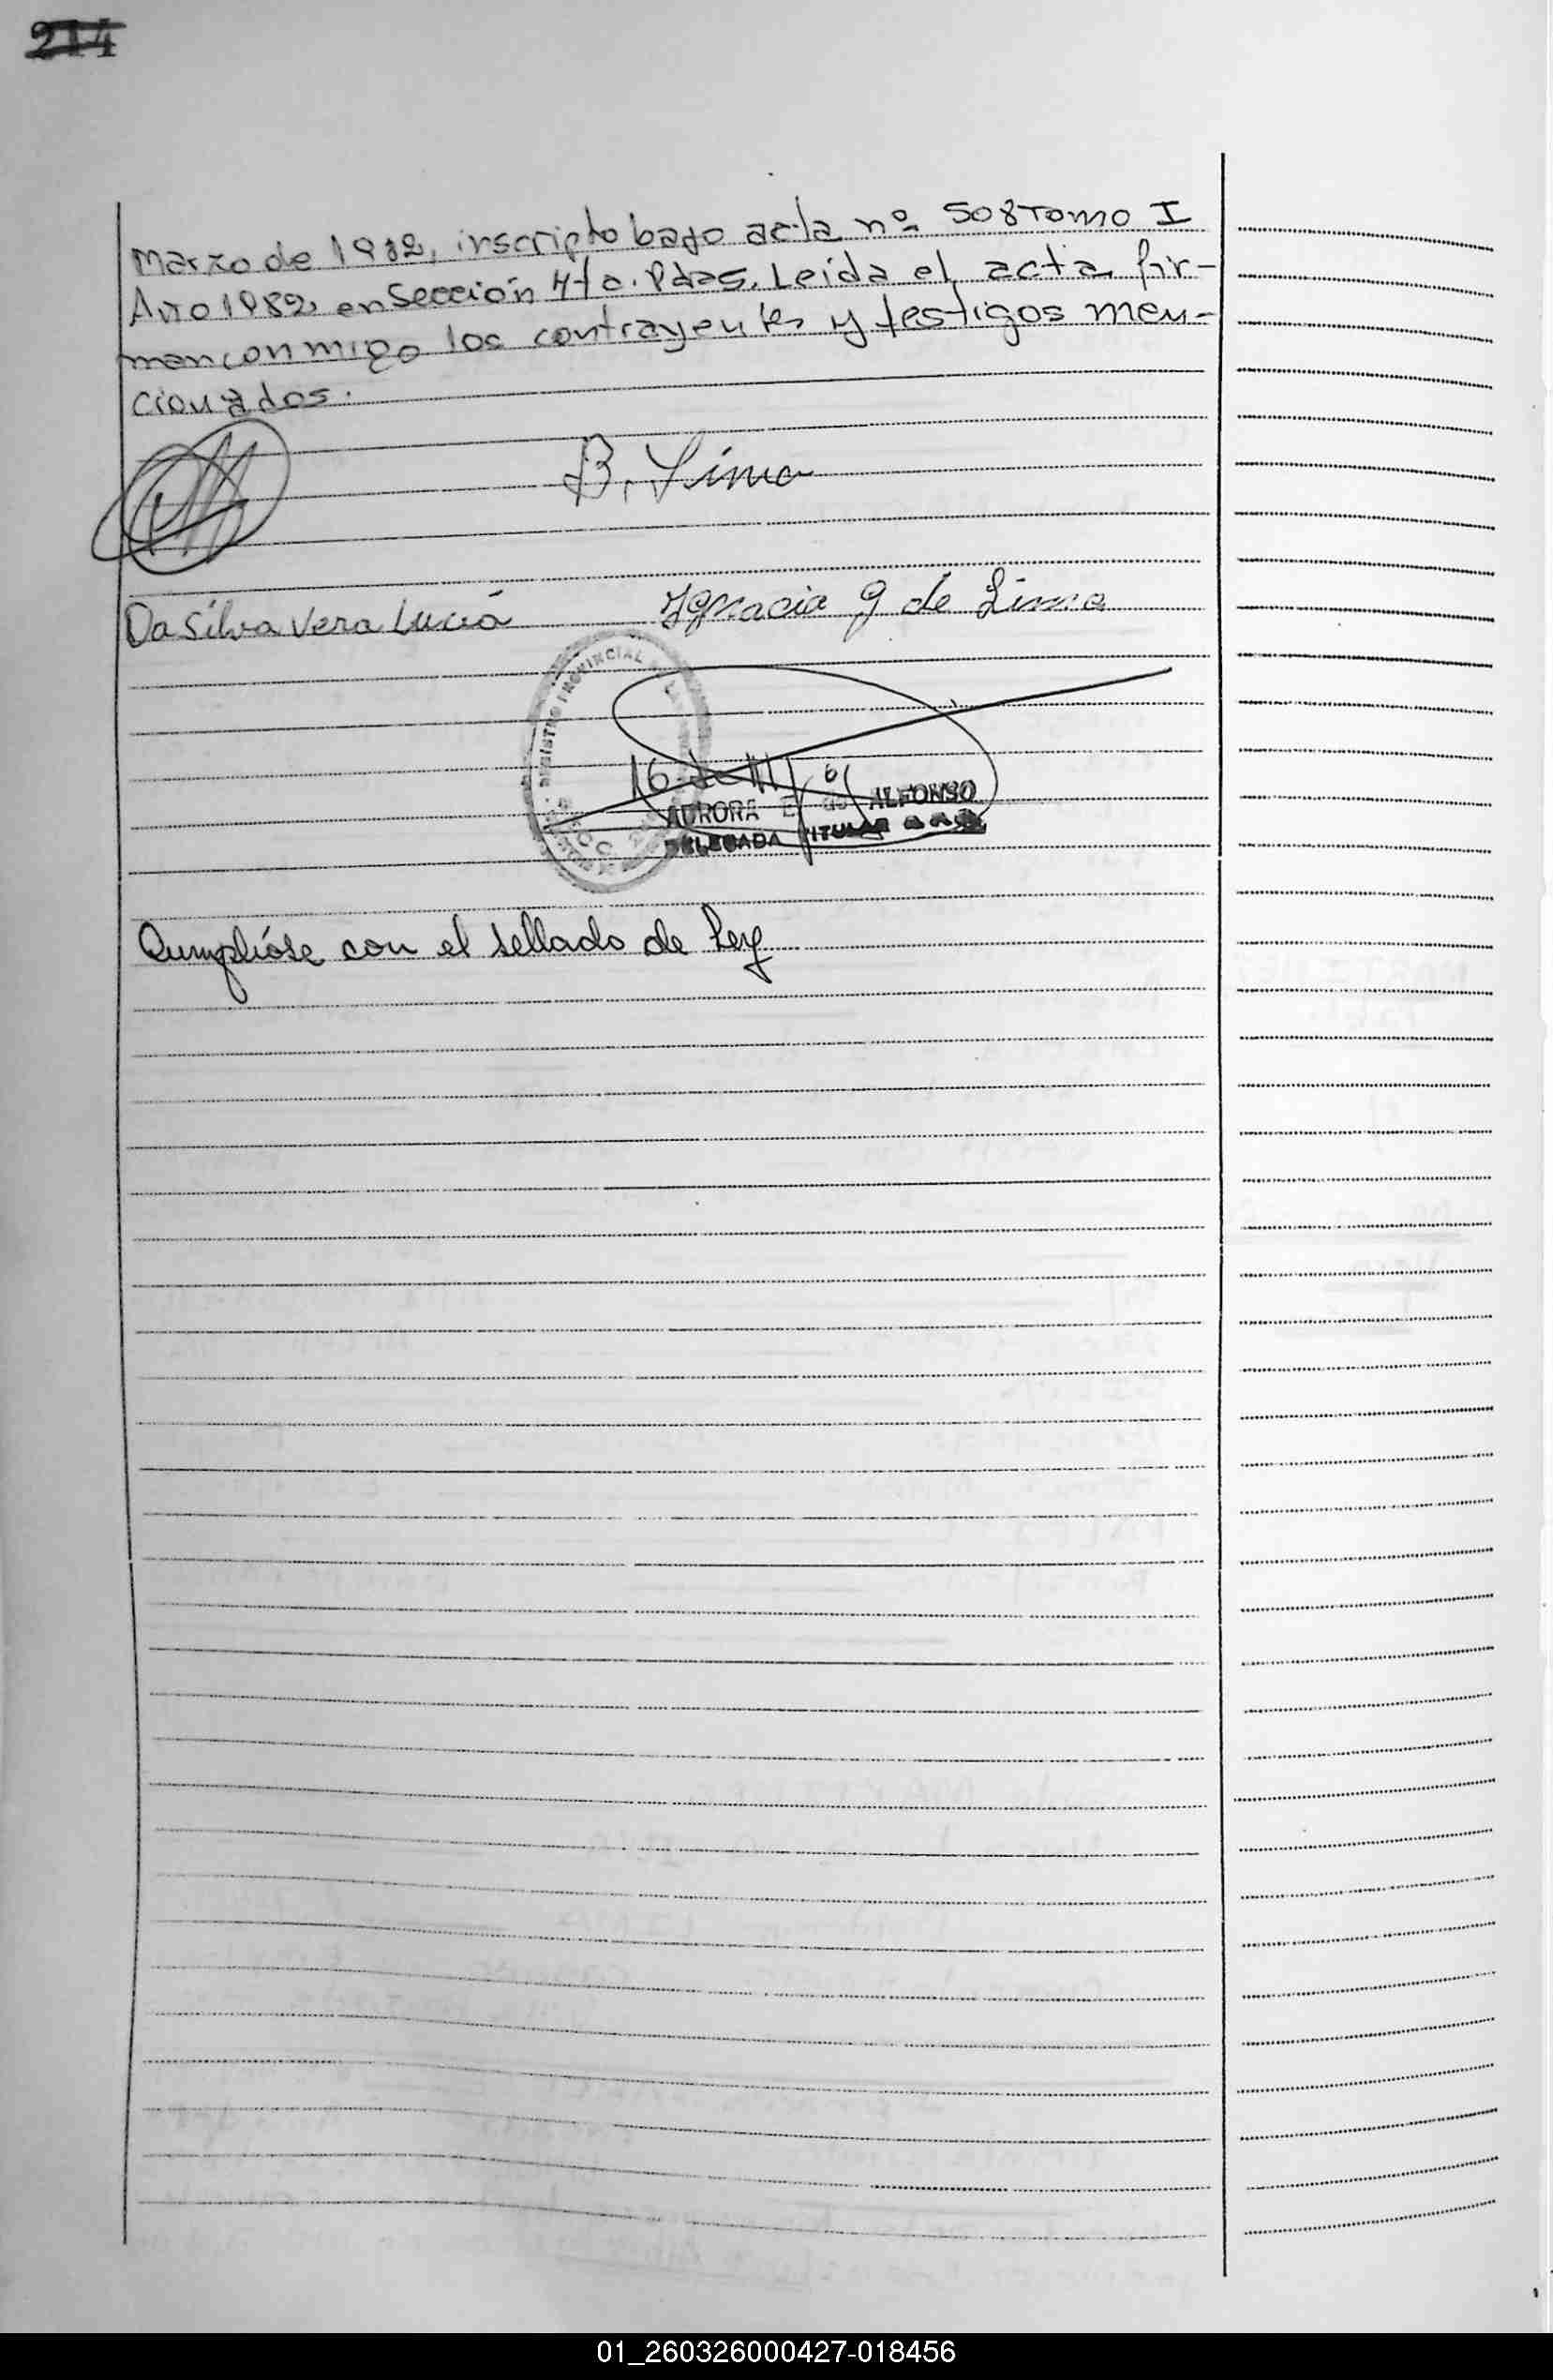 214
Marzo de 1982, inscripto bajo acta nº 508 Tomo I
Año 1982 en Sección 4ta. Pdas. Leída el acta fir-
man conmigo los contrayentes y testigos men-
cionados.
B. Lima
Da Silva Vera Lucía Ignacia G de Lima
REGISTRO PROVINCIAL
AURORA E. de ALFONSO
DELEGADA TITULAR
Cumplióse con el sellado de ley
01_260326000427-018456